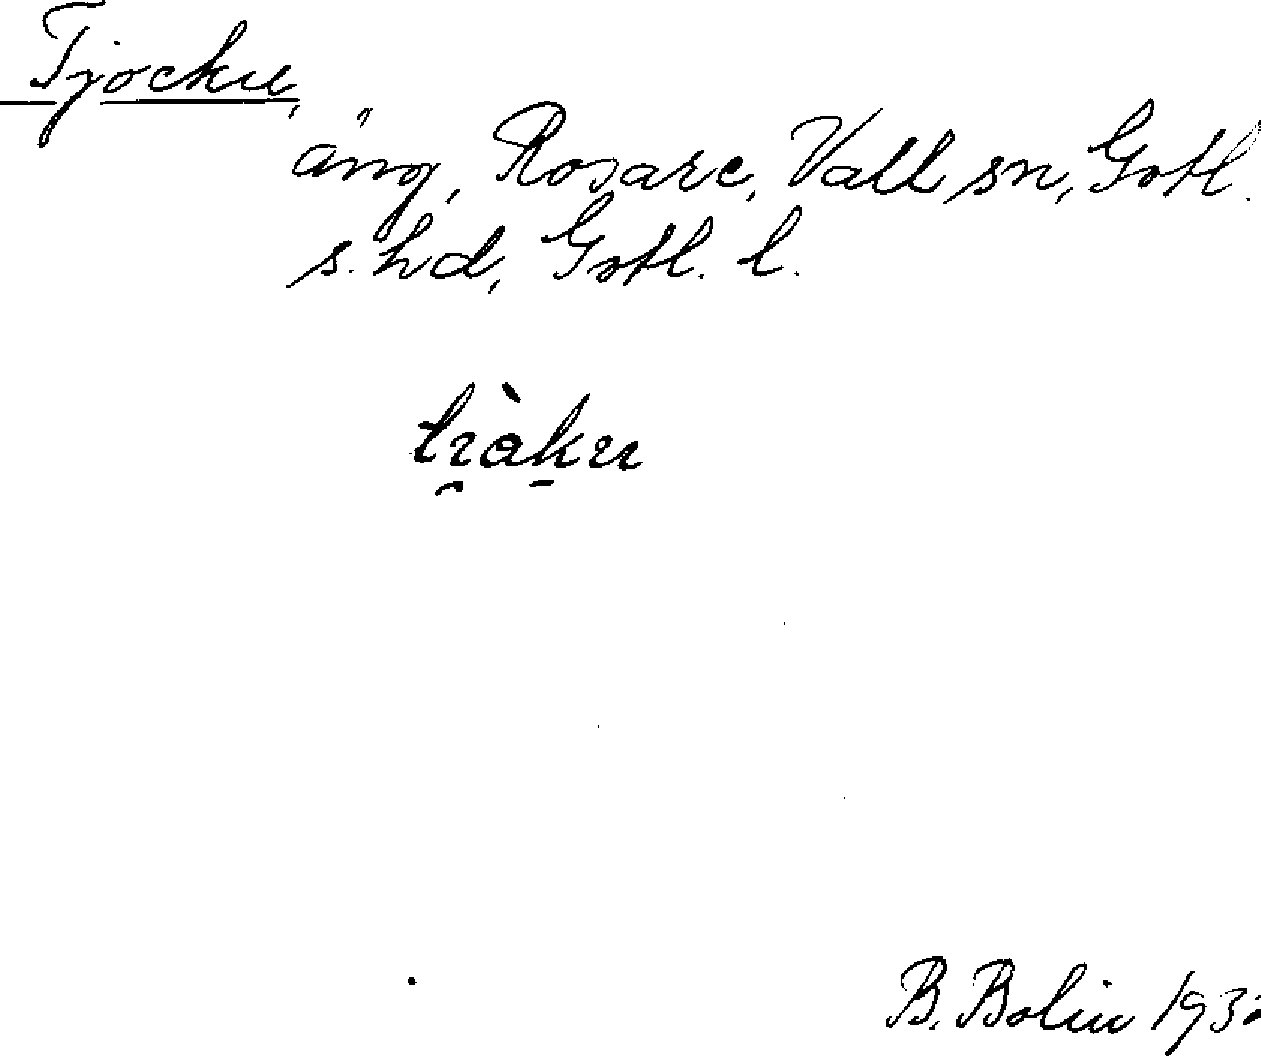 Tjocku,
äng, Rosarc, Vall sn, Gotl.
s. hd, Gotl. l.
B. Bolin 193